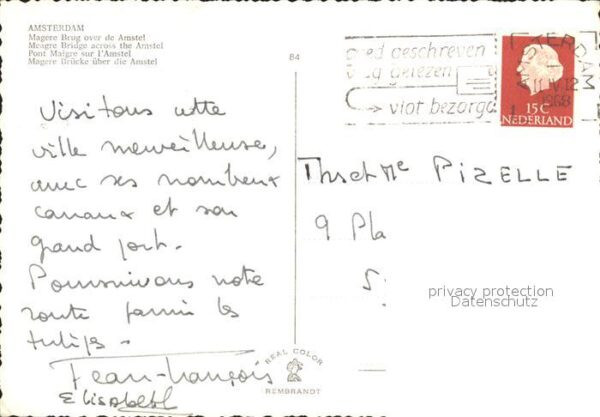 AMSTERDAM
Magere Brug over de Amstel
Meagre Bridge across the Amstel
Pont Maigre sur l'Amstel
Magere Brücke über die Amstel
84
goed geschreven
vlug gelezen
vlot bezorgd
AMSTERDAM
11.IV.12
1968
15C
NEDERLAND
Visitons cette
ville merveilleuse,
avec ses nombreux
canaux et son
grand port.
Poursuivons notre
route parmi les
tulipes.
Jean-François
Elisabeth
Mr et Me PIZELLE
9 Pla
S
privacy protection
Datenschutz
REAL COLOR
REMBRANDT